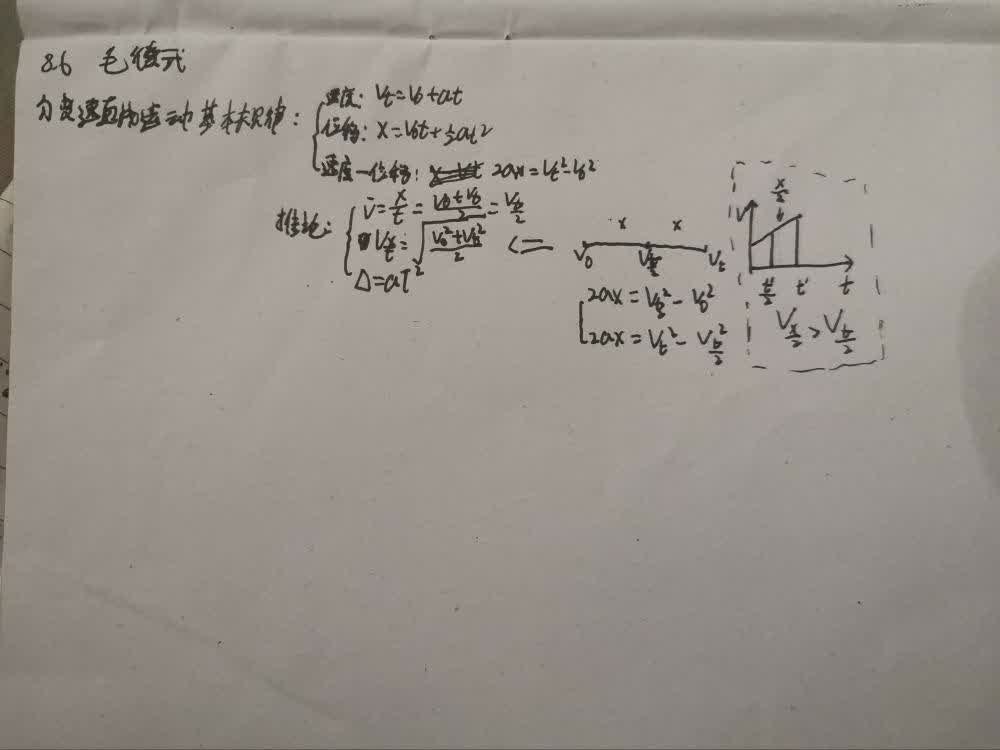 8.6 毛德元
匀变速直线运动基本规律:
速度: Vt=V0+at
位移: X=V0t+½at²
速度一位移: 2ax=Vt²-V0²
推论:
V̄=x/t=(V0+Vt)/2=Vt/2
Vx/2=√((V0²+Vt²)/2) <=
Δ=aT²
x x
V0 Vx/2 Vt
2ax=Vx/2²-V0²
2ax=Vt²-Vx/2²
x/2
V
t'/2 t' t
Vx/2>Vt/2